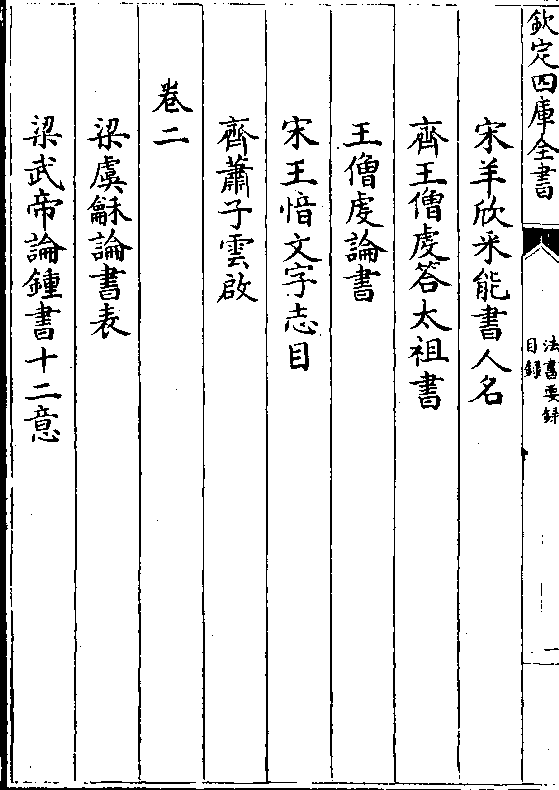 欽定四庫全書
法書要録
目録
一
宋羊欣采能書人名
齊王僧虔答太祖書
王僧虔論書
宋王愔文字志目
齊蕭子雲啟
卷二
梁虞龢論書表
梁武帝論鍾書十二意